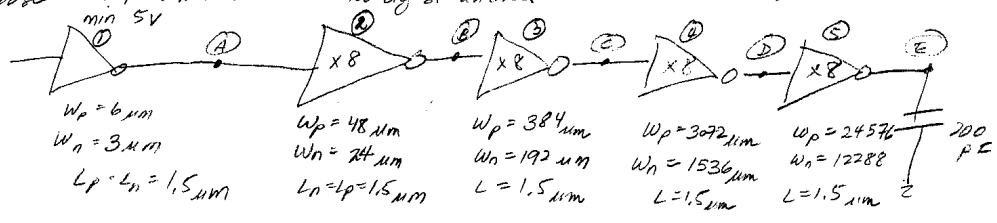 min 5V
① Ⓐ ② Ⓑ ③ Ⓒ ④ Ⓓ ⑤ Ⓔ
×8 ×8 ×8 ×8
Wp = 6 μm
Wn = 3 μm
Lp = Ln = 1.5 μm
Wp = 48 μm
Wn = 24 μm
Ln = Lp = 1.5 μm
Wp = 384 μm
Wn = 192 μm
L = 1.5 μm
Wp = 3072 μm
Wn = 1536 μm
L = 1.5 μm
Wp = 24576
Wn = 12288
L = 1.5 μm
200
pF